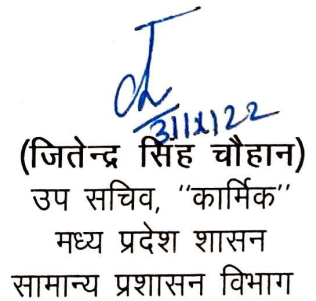 31/1/22
(जितेन्द्र सिंह चौहान)
उप सचिव, "कार्मिक"
मध्य प्रदेश शासन
सामान्य प्रशासन विभाग